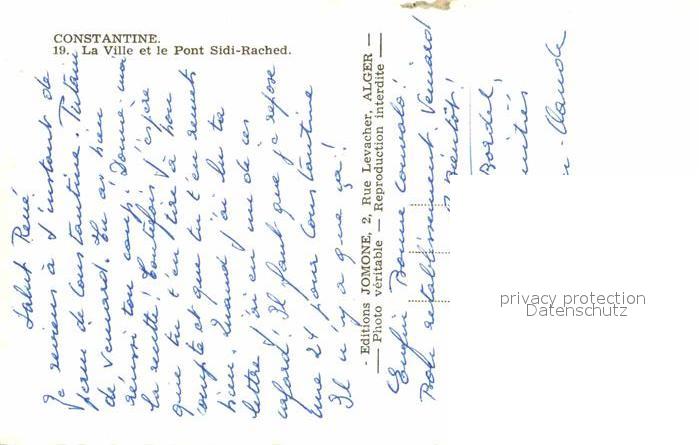 CONSTANTINE.
19. La Ville et le Pont Sidi-Rached.
Salut René
Je reviens à l'instant de
perm de Constantine. Putain
de veinard. Tu as bien
réussi ton coup! Donne-moi
la recette! Toutefois j'espère
que tu t'en tire à bon
compte et que tu t'en remets
bien. Quand j'ai lu ta
lettre j'ai eu un de ces
cafard! Il faut que je repose
une 24 pour Constantine
Il n'y a que ça!
- Editions JOMONE, 2, Rue Levacher, ALGER -
Photo véritable - Reproduction interdite
Enfin Bonne convalo!
Bon retablissement. Veinard
à bientôt!
Bordel!
Claude
privacy protection
Datenschutz